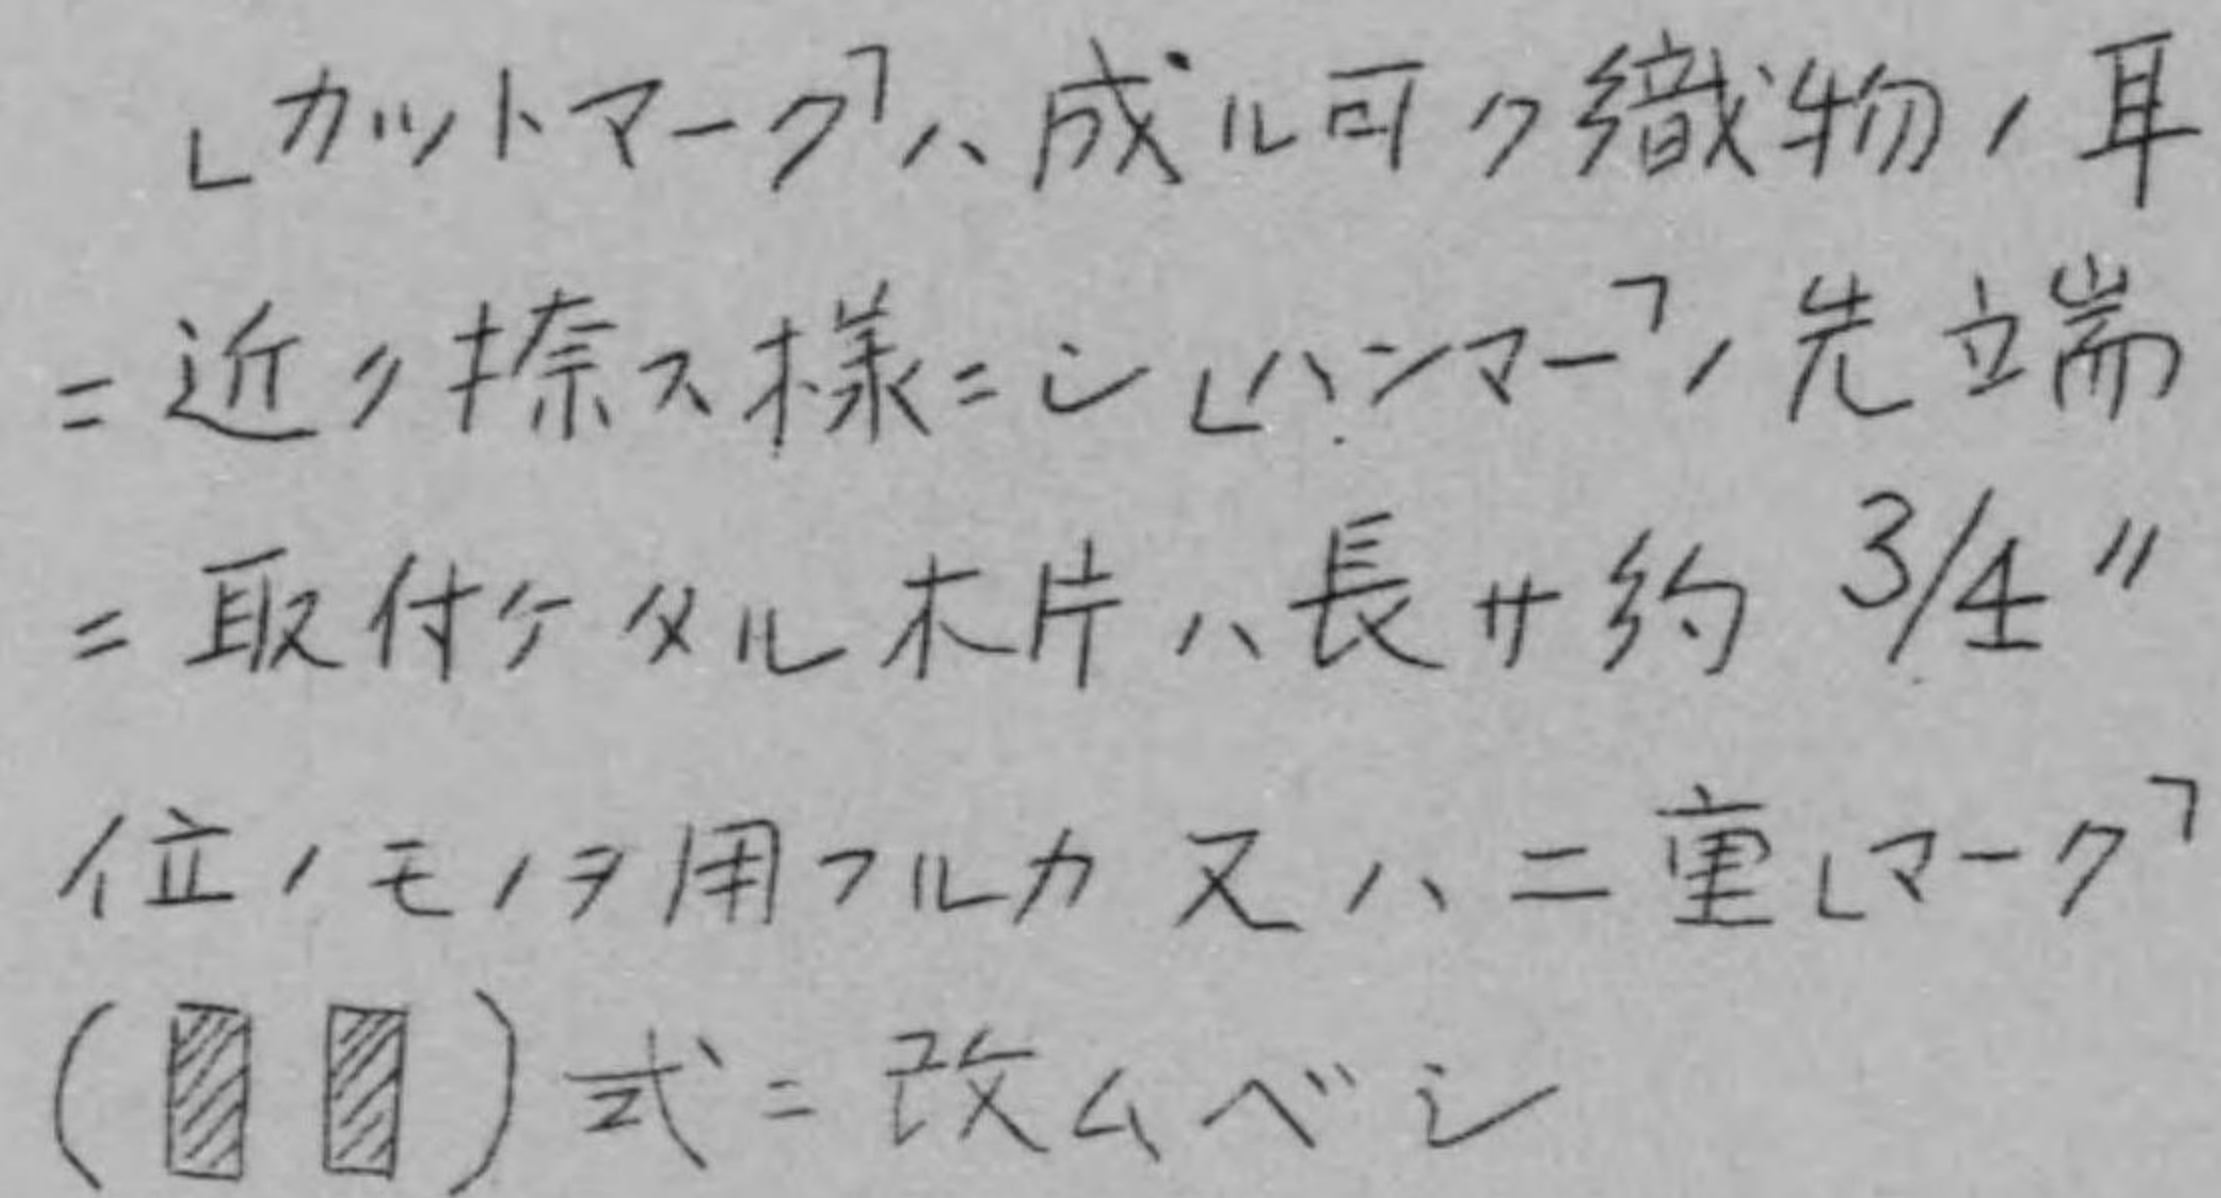 「カットマーク」ハ成ル可ク織物ノ耳
ニ近ク捺ス様ニシ「ハンマー」ノ先端
ニ取付ケタル木片ハ長サ約 3/4"
位ノモノヲ用フルカ又ハ二重「マーク」
( ) 式ニ改ムベシ